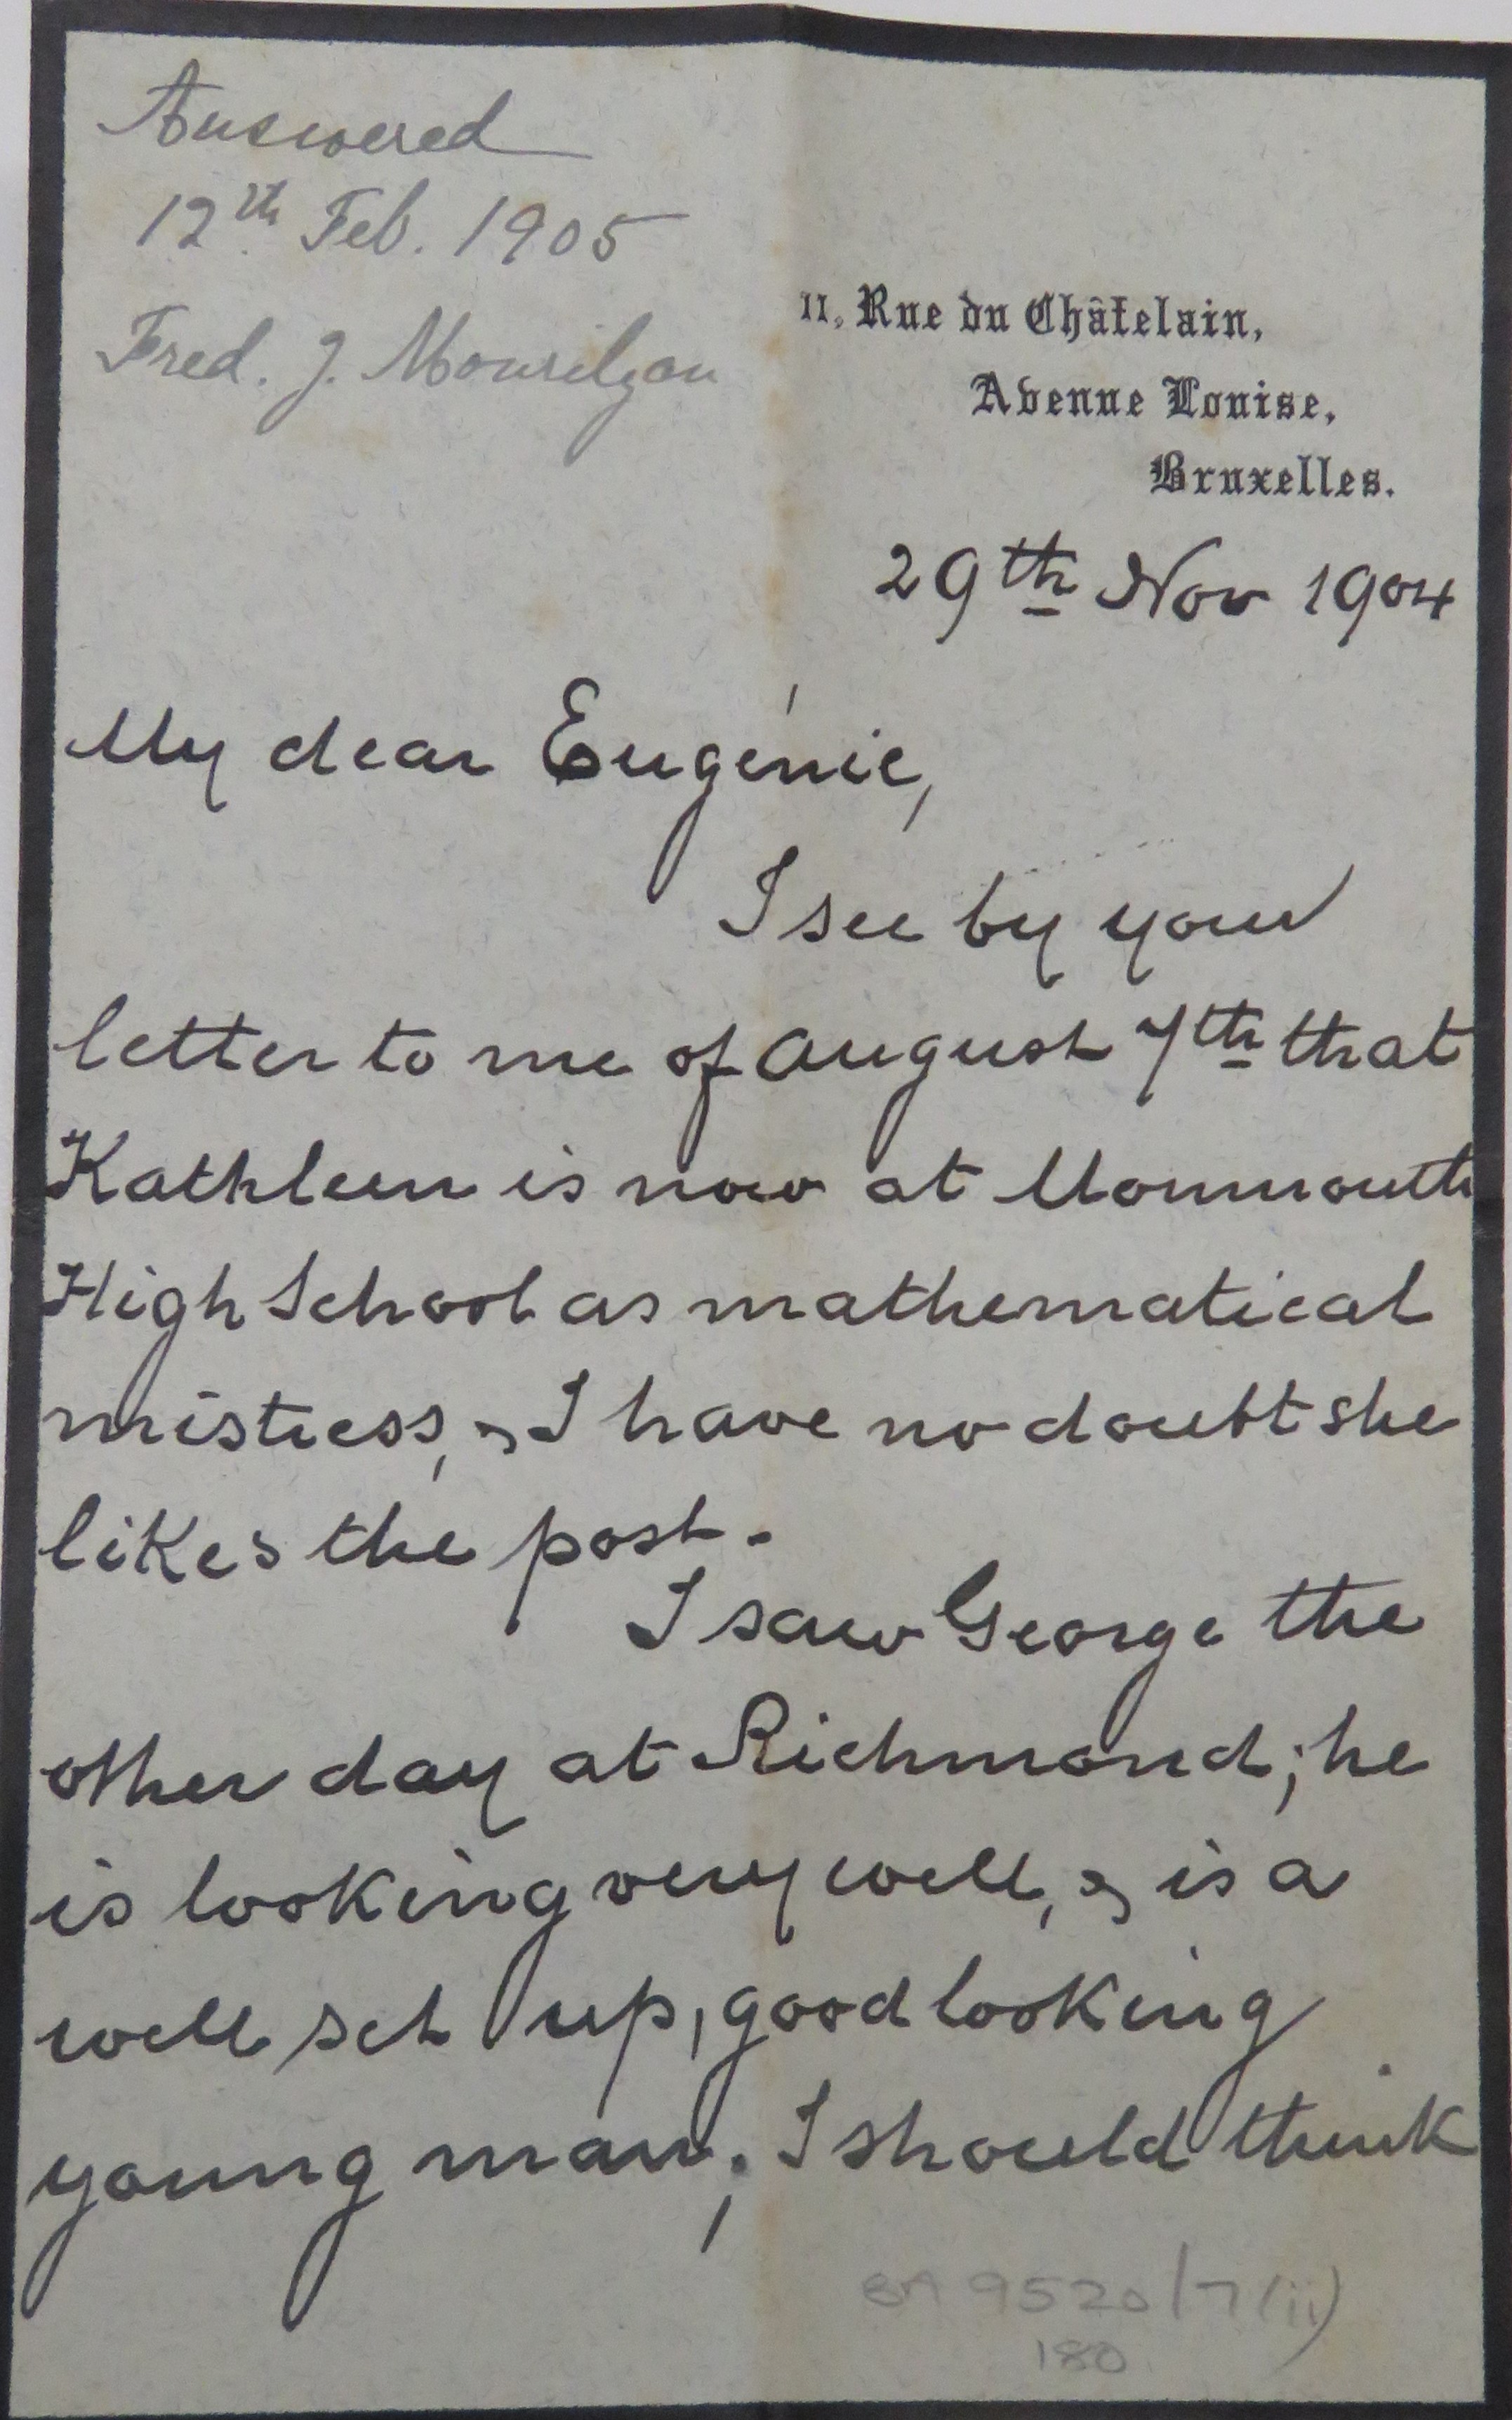 Answered
12th Feb. 1905
Fred. J. Mourilyan
11, Rue du Châtelain,
Avenue Louise,
Bruxelles.
29th Nov 1904
My dear Eugénie,
I see by your
letter to me of August 7th that
Kathleen is now at Monmouth
High School as mathematical
mistress, & I have no doubt she
likes the post.
I saw George the
other day at Richmond; he
is looking very well, & is a
well set up, good looking
young man; I should think
BA 9520/7(ii)
180